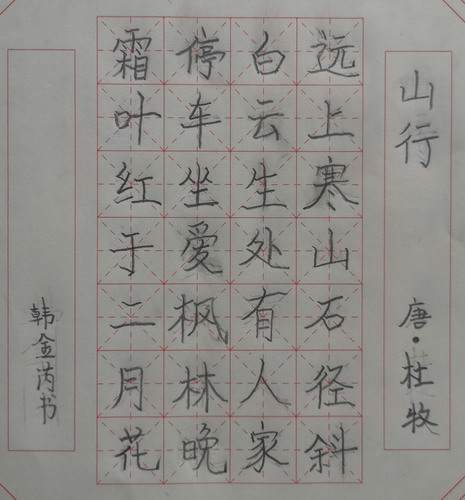 山行
唐·杜牧
远上寒山石径斜
白云生处有人家
停车坐爱枫林晚
霜叶红于二月花
韩金芮书